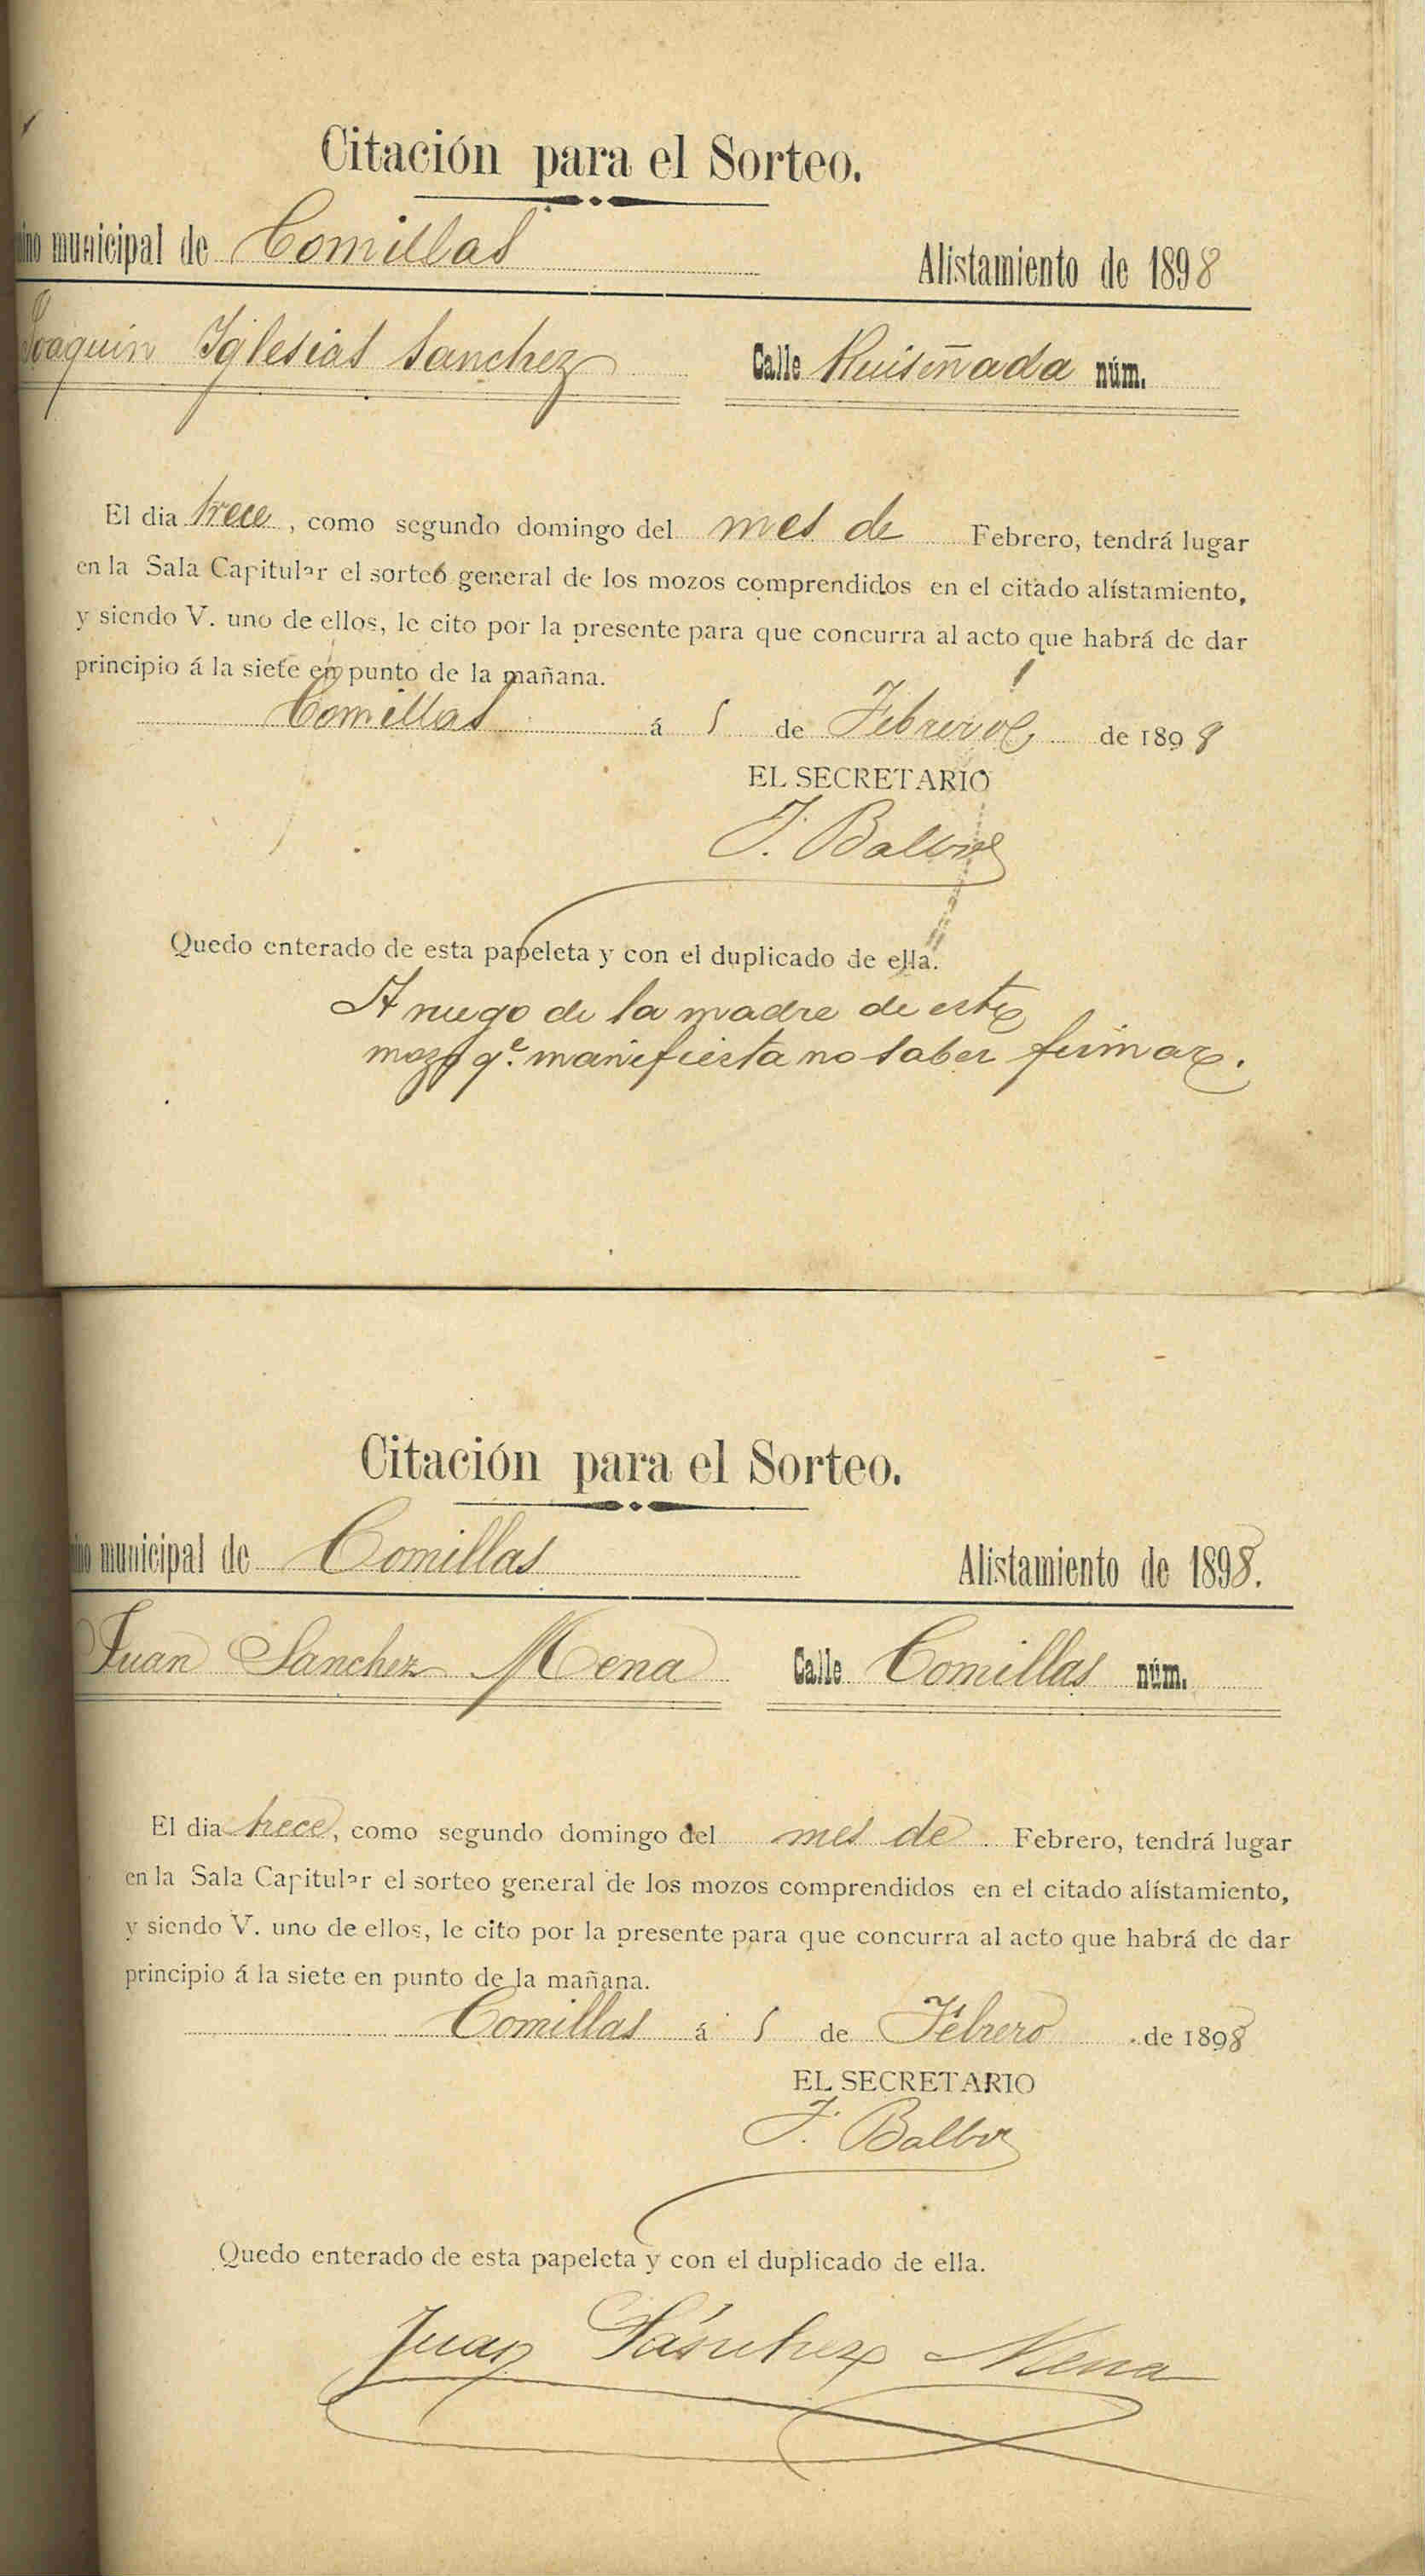 Citación para el Sorteo.
ino municipal de Comillas Alistamiento de 1898
Joaquin Iglesias Sanchez Calle Ruiseñada núm.
El dia trece, como segundo domingo del mes de Febrero, tendrá lugar
en la Sala Capitular el sorteo general de los mozos comprendidos en el citado alistamiento,
y siendo V. uno de ellos, le cito por la presente para que concurra al acto que habrá de dar
principio á la siete en punto de la mañana.
Comillas á 5 de Febrero de 1898
EL SECRETARIO
J. Balbin
Quedo enterado de esta papeleta y con el duplicado de ella.
A ruego de la madre de este
mozo q.e manifiesta no saber firmar.
Citación para el Sorteo.
ino municipal de Comillas Alistamiento de 1898.
Juan Sanchez Mena Calle Comillas núm.
El dia trece, como segundo domingo del mes de Febrero, tendrá lugar
en la Sala Capitular el sorteo general de los mozos comprendidos en el citado alistamiento,
y siendo V. uno de ellos, le cito por la presente para que concurra al acto que habrá de dar
principio á la siete en punto de la mañana.
Comillas á 5 de Febrero de 1898
EL SECRETARIO
J.
Quedo enterado de esta papeleta y con el duplicado de ella.
Juan Sánchez Mena